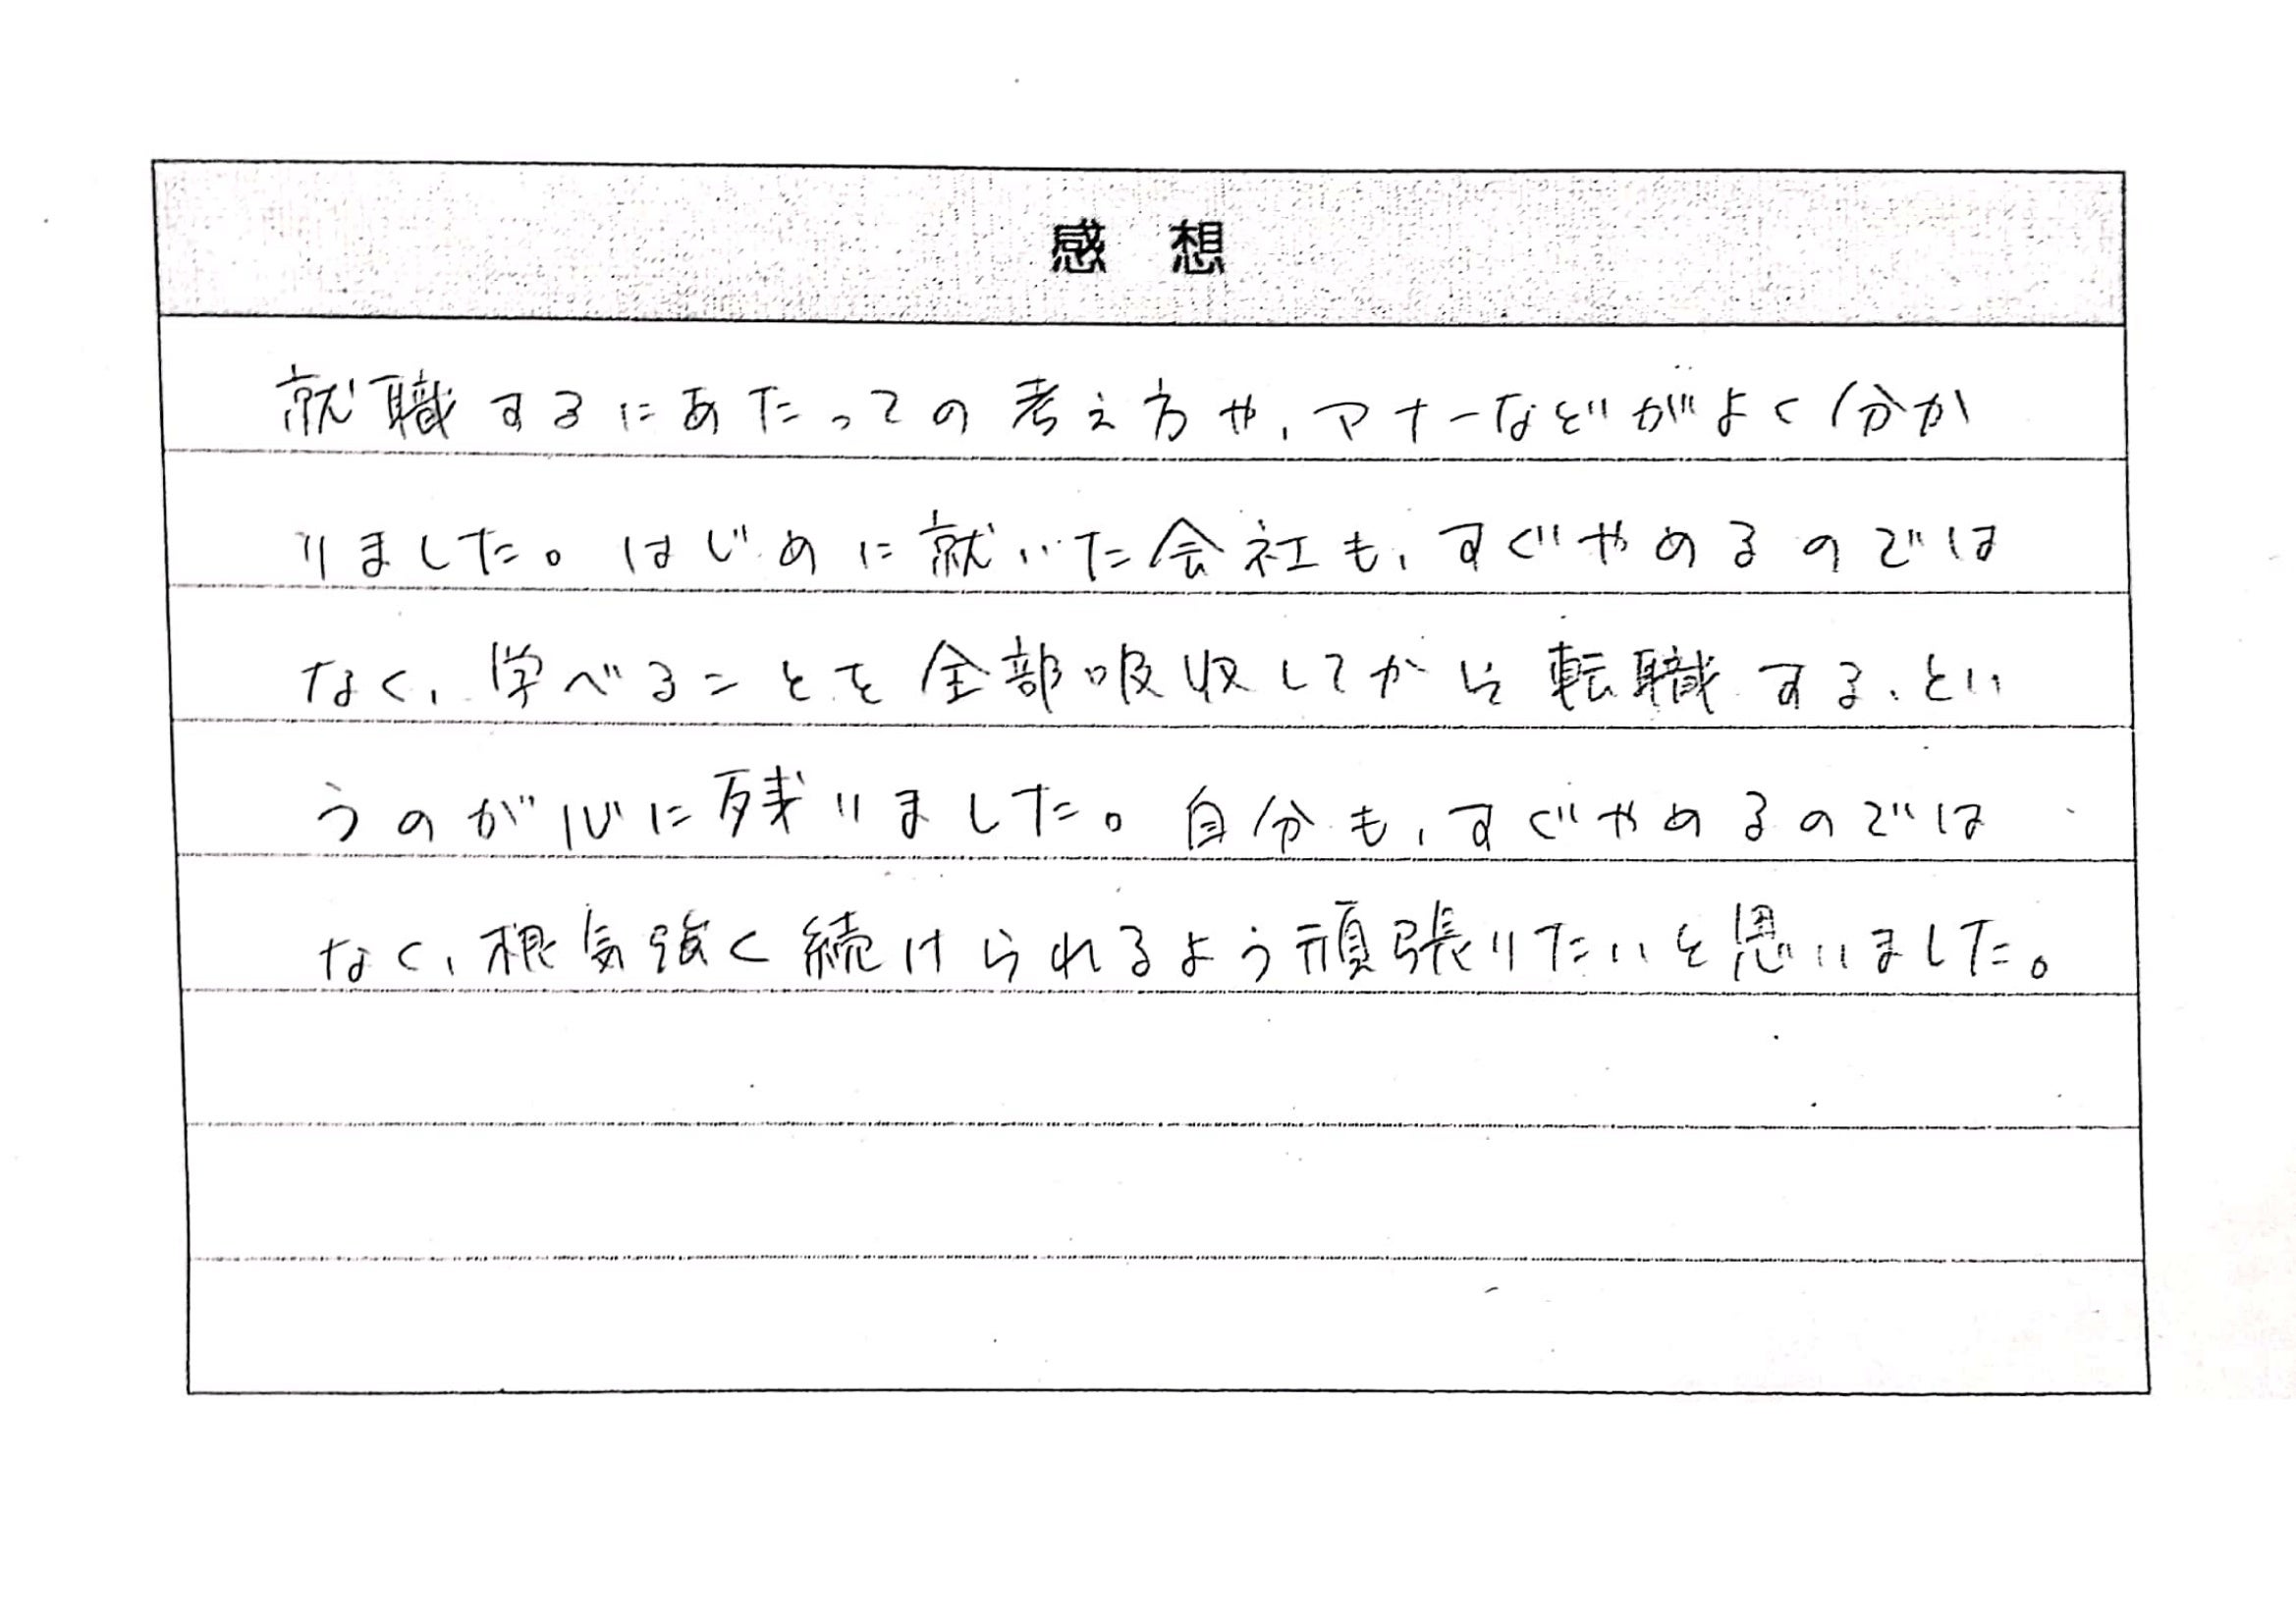 感想
就職するにあたっての考え方や、マナーなどがよく分か
りました。はじめに就いた会社も、すぐやめるのでは
なく、学べることを全部吸収してから転職する、とい
うのが心に残りました。自分も、すぐやめるのでは
なく、根気強く続けられるよう頑張りたいと思いました。